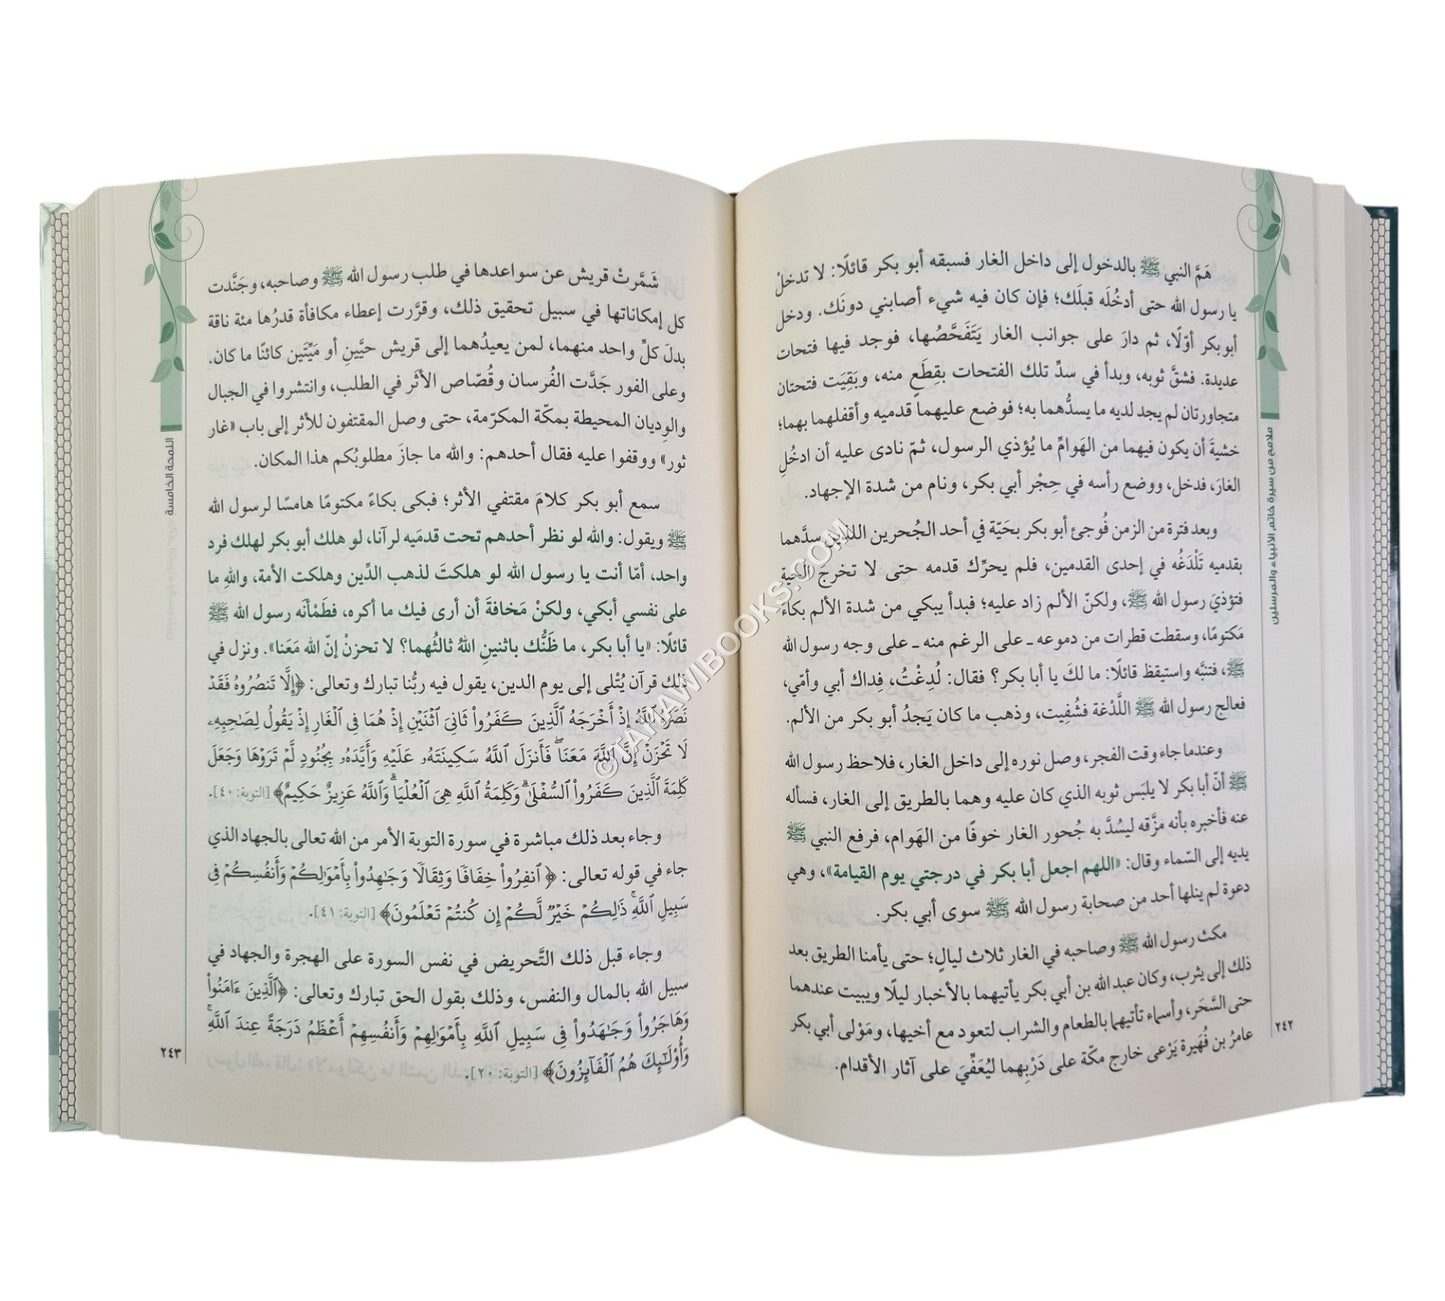 هَمَّ النبي ﷺ بالدخول إلى داخل الغار فسبقه أبو بكر قائلًا: لا تدخلْ
يا رسول الله حتى أدخُلَه قبلَك؛ فإن كان فيه شيء أصابني دونَك. ودخل
أبو بكر أوّلًا، ثم دارَ على جوانب الغار يَتَفَحَّصُها، فوجد فيها فتحات
عديدة. فشقَّ ثوبه، وبدأ في سدِّ تلك الفتحات بقِطَعٍ منه، وبَقِيَت فتحتان
متجاورتان لم يجد لديه ما يسدُّهما به؛ فوضع عليهما قدميه وأقفلهما بهما؛
خشيةَ أن يكون فيهما من الهَوامِّ ما يُؤذي الرسول، ثمّ نادى عليه أن ادخُلِ
الغارَ، فدخل، ووضع رأسه في حِجْر أبي بكر، ونام من شدة الإجهاد.
وبعد فترة من الزمن فُوجئ أبو بكر بحَيّة في أحد الجُحرين اللذين سدَّهما
بقدميه تَلْدَغُه في إحدى القدمين، فلم يحرِّك قدمه حتى لا تخرج الحية
فتؤذيَ رسول الله ﷺ، ولكنّ الألم زاد عليه؛ فبدأ يبكي من شدة الألم بكاءً
مَكتومًا، وسقطت قطرات من دموعه ـ على الرغم منه ـ على وجه رسول الله
ﷺ، فتنبَّه واستيقظ قائلًا: ما لكَ يا أبا بكر؟ فقال: لُدِغْتُ، فِداك أبي وأمّي،
فعالج رسول الله ﷺ اللَّدْغة فشُفِيت، وذهب ما كان يَجدُ أبو بكر من الألم.
وعندما جاء وقت الفجر، وصل نوره إلى داخل الغار، فلاحظ رسول الله
ﷺ أنّ أبا بكر لا يلبَس ثوبه الذي كان عليه وهما بالطريق إلى الغار، فسأله
عنه فأخبره بأنه مزَّقه ليسُدَّ به جُحور الغار خوفًا من الهَوام، فرفع النبي ﷺ
يديه إلى السّماء وقال: «اللهم اجعل أبا بكر في درجتي يوم القيامة»، وهي
دعوة لم ينلها أحد من صحابة رسول الله ﷺ سوى أبي بكر.
مكث رسول الله ﷺ وصاحبه في الغار ثلاث ليالٍ؛ حتى يأمنا الطريق بعد
ذلك إلى يثرب، وكان عبد الله بن أبي بكر يأتيهما بالأخبار ليلًا ويبيت عندهما
حتى السَّحَر، وأسماء تأتيهما بالطعام والشراب لتعود مع أخيها، ومَوْلى أبي بكر
عامرُ بن فُهَيرة يَرْعى خارج مكّة على دَرْبِهما ليُعَفِّيَ على آثار الأقدام.
ملامح من سيرة خاتم الأنبياء والمرسلين
٢٤٢
شَمَّرتْ قريش عن سواعدها في طلب رسول الله ﷺ وصاحبه، وجَنَّدت
كل إمكاناتها في سبيل تحقيق ذلك، وقرَّرت إعطاء مكافأة قدرُها مئة ناقة
بدلَ كلِّ واحد منهما، لمن يعيدُهما إلى قريش حيَّينِ أو مَيِّتَين كائنًا ما كان.
وعلى الفور جَدَّت الفُرسان وقُصّاص الأثَر في الطلب، وانتشروا في الجبال
والوِديان المحيطة بمكّة المكرّمة، حتى وصل المقتفون للأثر إلى باب «غار
ثور» ووقفوا عليه فقال أحدهم: والله ما جازَ مطلوبُكم هذا المكان.
سمع أبو بكر كلامَ مقتفي الأثر؛ فبكى بكاءً مكتومًا هامسًا لرسول الله
ﷺ ويقول: والله لو نظر أحدهم تحت قدمَيه لرآنا، لو هلك أبو بكر لهلك فرد
واحد، أمّا أنت يا رسول الله لو هلكتَ لذهب الدِّين وهلكت الأمة، واللهِ ما
على نفسي أبكي، ولكنْ مَخافةَ أن أرى فيك ما أكره، فطَمْأنَه رسول الله ﷺ
قائلًا: «يا أبا بكر، ما ظَنُّك باثنينِ اللهُ ثالثُهما؟ لا تحزنْ إنّ الله مَعَنا». ونزل في
ذلك قرآن يُتْلى إلى يوم الدين، يقول فيه ربُّنا تبارك وتعالى: ﴿إِلَّا تَنصُرُوهُ فَقَدۡ
نَصَرَهُ ٱللَّهُ إِذۡ أَخۡرَجَهُ ٱلَّذِينَ كَفَرُواْ ثَانِيَ ٱثۡنَيۡنِ إِذۡ هُمَا فِي ٱلۡغَارِ إِذۡ يَقُولُ لِصَٰحِبِهِۦ
لَا تَحۡزَنۡ إِنَّ ٱللَّهَ مَعَنَاۖ فَأَنزَلَ ٱللَّهُ سَكِينَتَهُۥ عَلَيۡهِ وَأَيَّدَهُۥ بِجُنُودٖ لَّمۡ تَرَوۡهَا وَجَعَلَ
كَلِمَةَ ٱلَّذِينَ كَفَرُواْ ٱلسُّفۡلَىٰۗ وَكَلِمَةُ ٱللَّهِ هِيَ ٱلۡعُلۡيَاۗ وَٱللَّهُ عَزِيزٌ حَكِيمٌ﴾ [التوبة: ٤٠].
وجاء بعد ذلك مباشرة في سورة التوبة الأمر من الله تعالى بالجهاد الذي
جاء في قوله تعالى: ﴿ٱنفِرُواْ خِفَافٗا وَثِقَالٗا وَجَٰهِدُواْ بِأَمۡوَٰلِكُمۡ وَأَنفُسِكُمۡ فِي
سَبِيلِ ٱللَّهِۚ ذَٰلِكُمۡ خَيۡرٞ لَّكُمۡ إِن كُنتُمۡ تَعۡلَمُونَ﴾ [التوبة: ٤١].
وجاء قبل ذلك التَّحريض في نفس السورة على الهجرة والجهاد في
سبيل الله بالمال والنفس، وذلك بقول الحق تبارك وتعالى: ﴿ٱلَّذِينَ ءَامَنُواْ
وَهَاجَرُواْ وَجَٰهَدُواْ فِي سَبِيلِ ٱللَّهِ بِأَمۡوَٰلِهِمۡ وَأَنفُسِهِمۡ أَعۡظَمُ دَرَجَةً عِندَ ٱللَّهِۚ
وَأُوْلَٰٓئِكَ هُمُ ٱلۡفَآئِزُونَ﴾ [التوبة: ٢٠].
اللمحة الخامسة
٢٤٣
©TAHAWIBOOKS.COM